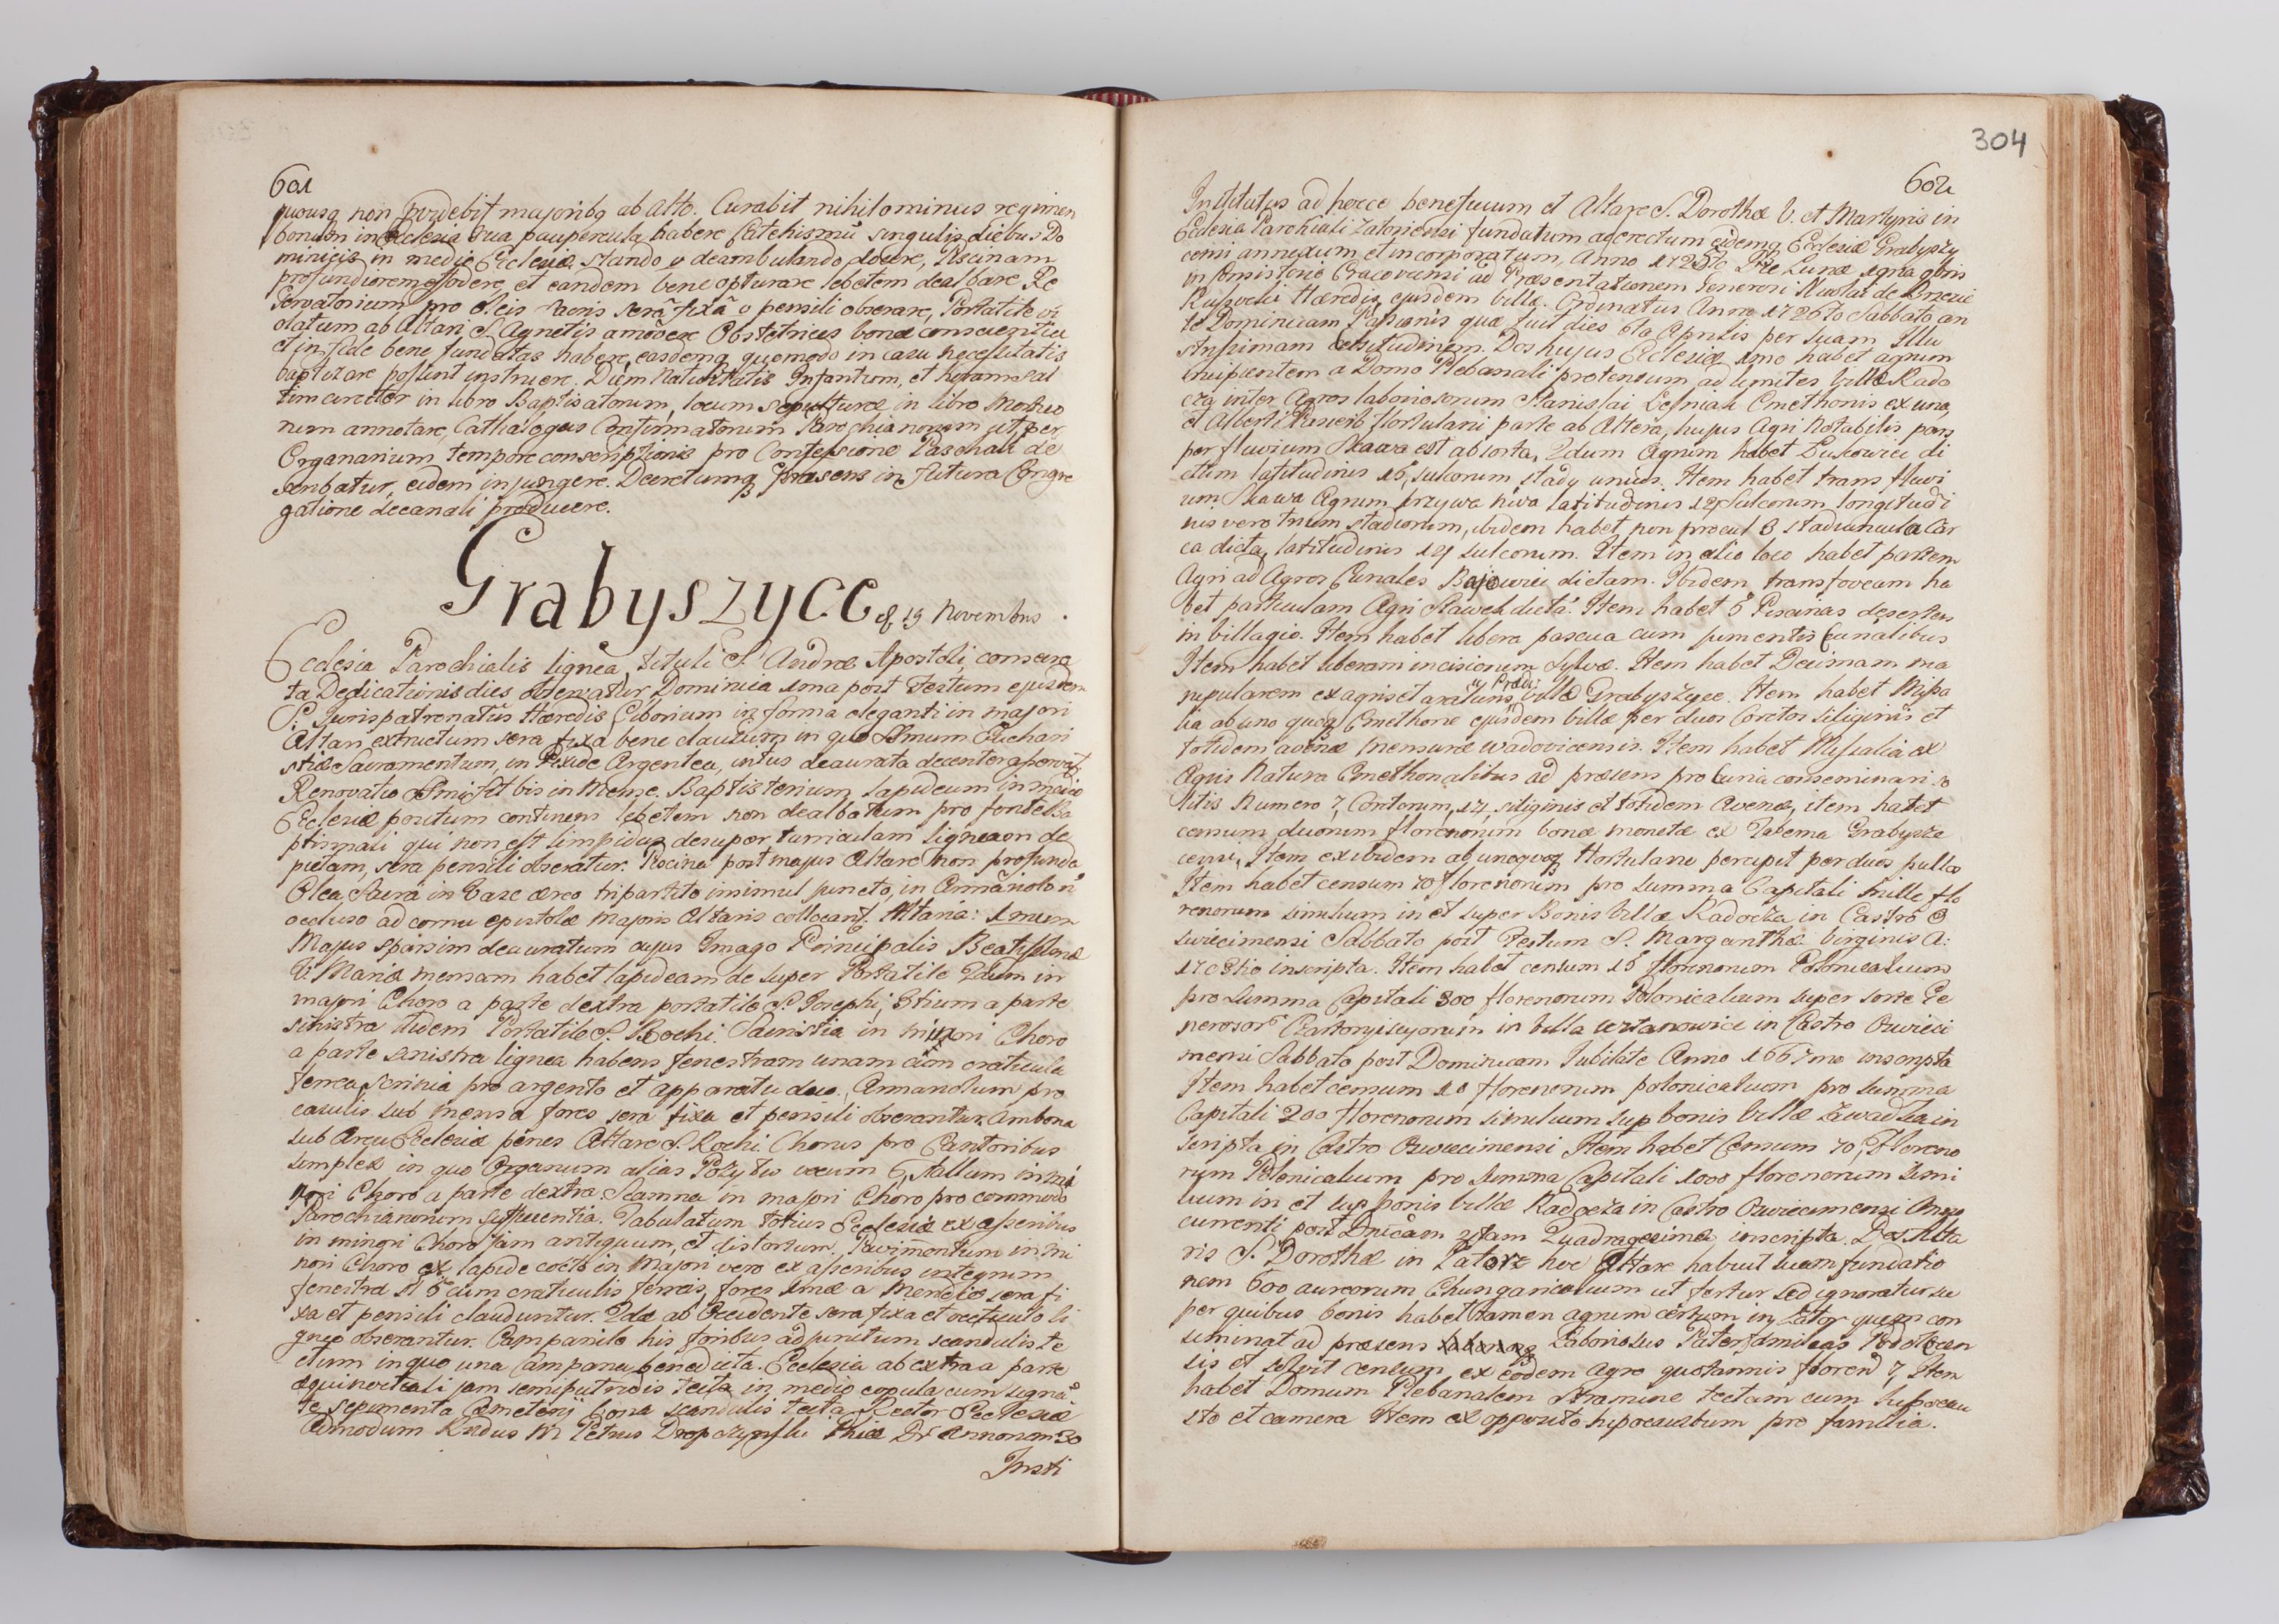 601
quousq non providebit majoribq ab alto. Curabit nihilominus regimen
bonum in Ecclesia sua paupercula habere Catehismũ singulis diebus Do
minicis in medio Ecclesiæ stando v deambulando docere, Piscinam
profundiorem effodere, et eandem bene opturare lebetem dealbare Re
servatorium pro Oleis sacris serâ fixâ v pensili obserare, Portatile vi
olatum ab Altari S. Agnetis amovere Obstetrices bonæ conscientiæ
et in fide bene fundatas habere, easdemq quomodo in casu necessitatis
baptizare possint instruere. Diem Nativitatis Infantium, et horam sal
tim circiter in libro Baptisatorum, locum sepulturæ in libro Mortuo
rum annotare, Cathalogus Confirmatorum Parochianorum ut per
Organarium tempore conscriptionis pro Confessione Paschali de
scribatur, eidem injungere. Decretumq præsens in futura Congre
gatione decanali producere.
Grabyszyce 19 Novembris
Ecclesia Parochialis lignea, tituli S. Andreæ Apostoli, consecra
ta Dedicationis dies observatur Dominica 1ma post Festum ejusdem
S. Jurispatronatûs Hæredis Ciborium in forma eleganti in majori
Altari extructum sera fixa bene clausum in quo SSmum Euchari
stiæ Sacramentum, in Pixide Argentea, intus deaurata decenter aservat
Renovatio SSmi fit bis in Mense. Baptisterium lapideum in medio
Ecclesiæ positum continens lebetem non dealbatum pro fonte Ba
ptismali qui non est limpidus desuper turriculam ligneam de
pictam, sera pensili obseratur. Piscina post majus Altare non profunda
Olea Sacra in Vase æreo tripartito insimul juncto, in Armariolo n
occluso ad cornu epistolæ majoris Altaris collocant. Altaria: 1mum
Majus sparsim deauratum cujus Imago Principalis Beatissimæ
V. Mariæ mensam habet lapideam de super Portatile 2dum in
majori Choro a parte dextra portatile S. Josephi, 3tium a parte
sinistra itidem Portatile S. Rochi. Sacristia in minori Choro
a parte sinistra lignea habens fenestram unam cum craticula
ferrea Scrinia pro argento et apparatu duo. Armariolum pro
casulis sub mensa fores sera fixa et pensili obserantur Ambona
sub Arcu Ecclesiæ penes Altare S. Rochi. Chorus pro Cantoribus
simplex in quo Organum alias Pozytiw vocum 6, Stallum in mi
nori Choro a parte dextra. Scamna in majori Choro pro commodo
Parochianorum sufficientia. Tabulatum totius Ecclesiæ ex asseribus
in minori Choro jam antiquum, et distortum. Pavimentum in mi
nori Choro ex lapide cocto in Majori vero ex asseribus integrum
fenestræ N 6 cum craticulis ferreis, fores 1mæ a Meridie sera fi
xa et pensili clauduntur. 2dæ ab Occidente sera fixa et vecticulo li
gneo obserantur. Campanile his foribus adjunctum scandulis te
ctum in quo una Campana benedicta. Ecclesia ab extra a parte
æquinoctiali jam semiputridis tecta in medio copula cum signa
te sepimenta Cæmeterij bona scandulis tecta. Rector Ecclesiæ
Admodum Rndus M Petrus Dropczynski Phiæ Dr Annorum 30
Insti
304
602
Institutus ad hocce beneficium et Altare S. Dorothæ V. et Martyris in
Ecclesia Parochiali Zatoriensi fundatum ac erectum eidemq Ecclesiæ Grabyszy
censi annexum et incorporatum, Anno 172 to Die Lunæ 19na 9bris
in Consistorio Cracoviensi ad Præsentationem Generosi Nicolai de Brzezie
Russocki Hæredis ejusdem villæ. Ordinatus Anno 1726to Sabbato an
te Dominicam Passionis quæ fuit dies 6ta Aprilis per suam Illu
strissimam Celsitudinem. Dos hujus Ecclesiæ 1mo habet agrum
incipientem a Domo Plebanali protensum ad limites Villæ Rado
cza inter Agros laboriosorum Stanislai Lesniak Cmethonis ex una,
et Alberti hortulani parte ab Altera, hujus Agri notabilis pars
per fluvium Skawa est absorta, 2dum Agrum habet Lukowiec di
ctum latitudinis 16, sulcorum stady unius. Item habet trans fluvi
um Skawa Agrum przywa niwa latitudinis 12 Sulcorum, longitudi
nis vero trium stadiorum, ibidem habet, non procul 3 stadiuncula Car
ca dicta, latitudinis 14 sulcorum. Item in alio loco habet partem
Agri ad Agros Curiales Bajowiec dictam. Ibidem, trans foveam ha
bet particulam Agri Stawek dictã. Item habet 6 Piscinas desertas
in villagio. Item habet libera pascua cum jumentis Curialibus
Item habet liberam incisionem Sylvæ. Item habet Decimam ma
nipularem ex agris et araturis villæ Grabyszyce. Item habet Missa
lia ab uno quoq Cmethone ejusdem villæ per duos Coretos siliginis et
totidem avenæ mensuræ Wadovicensis. Item habet Missalia ex
Agris Natura Cmethonalibus ad præsens pro Curia conseminari so
litis Numero 7, Coretorum, 14, siliginis et totidem Avenæ, item habet
censum duorum florenorum bonæ monetæ ex Taberna Grabyszy
censi, Item ex ibidem ab unoquoq Hortulano percipit per duos pullos
Item habet censum 70 florenorum pro summa Capitali mille flo
renorum similium in et super Bonis Villæ Radocza in Castro O
swiecimensi Sabbato post Festum S. Margarithæ Virginis A:
1708tio inscripta. Item habet censum 16 florenorum Polonicalium
pro Summa Capitali 300 florenorum Polonicalium super sorte Ge
nerosor Czartoryiscyorum in Villa in Castro Oswieci
mensi Sabbato post Dominicam Jubilate Anno 1667mo inscripta
Item habet censum 10 florenorum polonicalium pro summa
Capitali 200 florenorum similium sup bonis Villæ Zawadka in
scripta in Castro Oswiecimensi Item habet Censum 70, Floreno
rum Polonicalium pro summa Capitali 1000 florenorum simi
lium in et sup bonis villæ Radocza in Castro Oswiecimensi Anno
currenti post Dnicam 4tam Quadragesimæ, inscripta. Dos Alta
ris S. Dorothæ in Zatorz hoc Altare habuit suam fundatio
nem 600 aureorum Chungaricalium ut fertur sed ignoratur su
per quibus bonis habet tamen agrum certum in Zator quem con
seminat ad præsens Laboriosus Pater familias Podolscen
sis et solvit censum ex eodem agro quotannis floren 7, Item
habet Domum Plebanalem stramine tectam cum hipocau
sto et camera Item ex opposito hipocaustum pro familia.